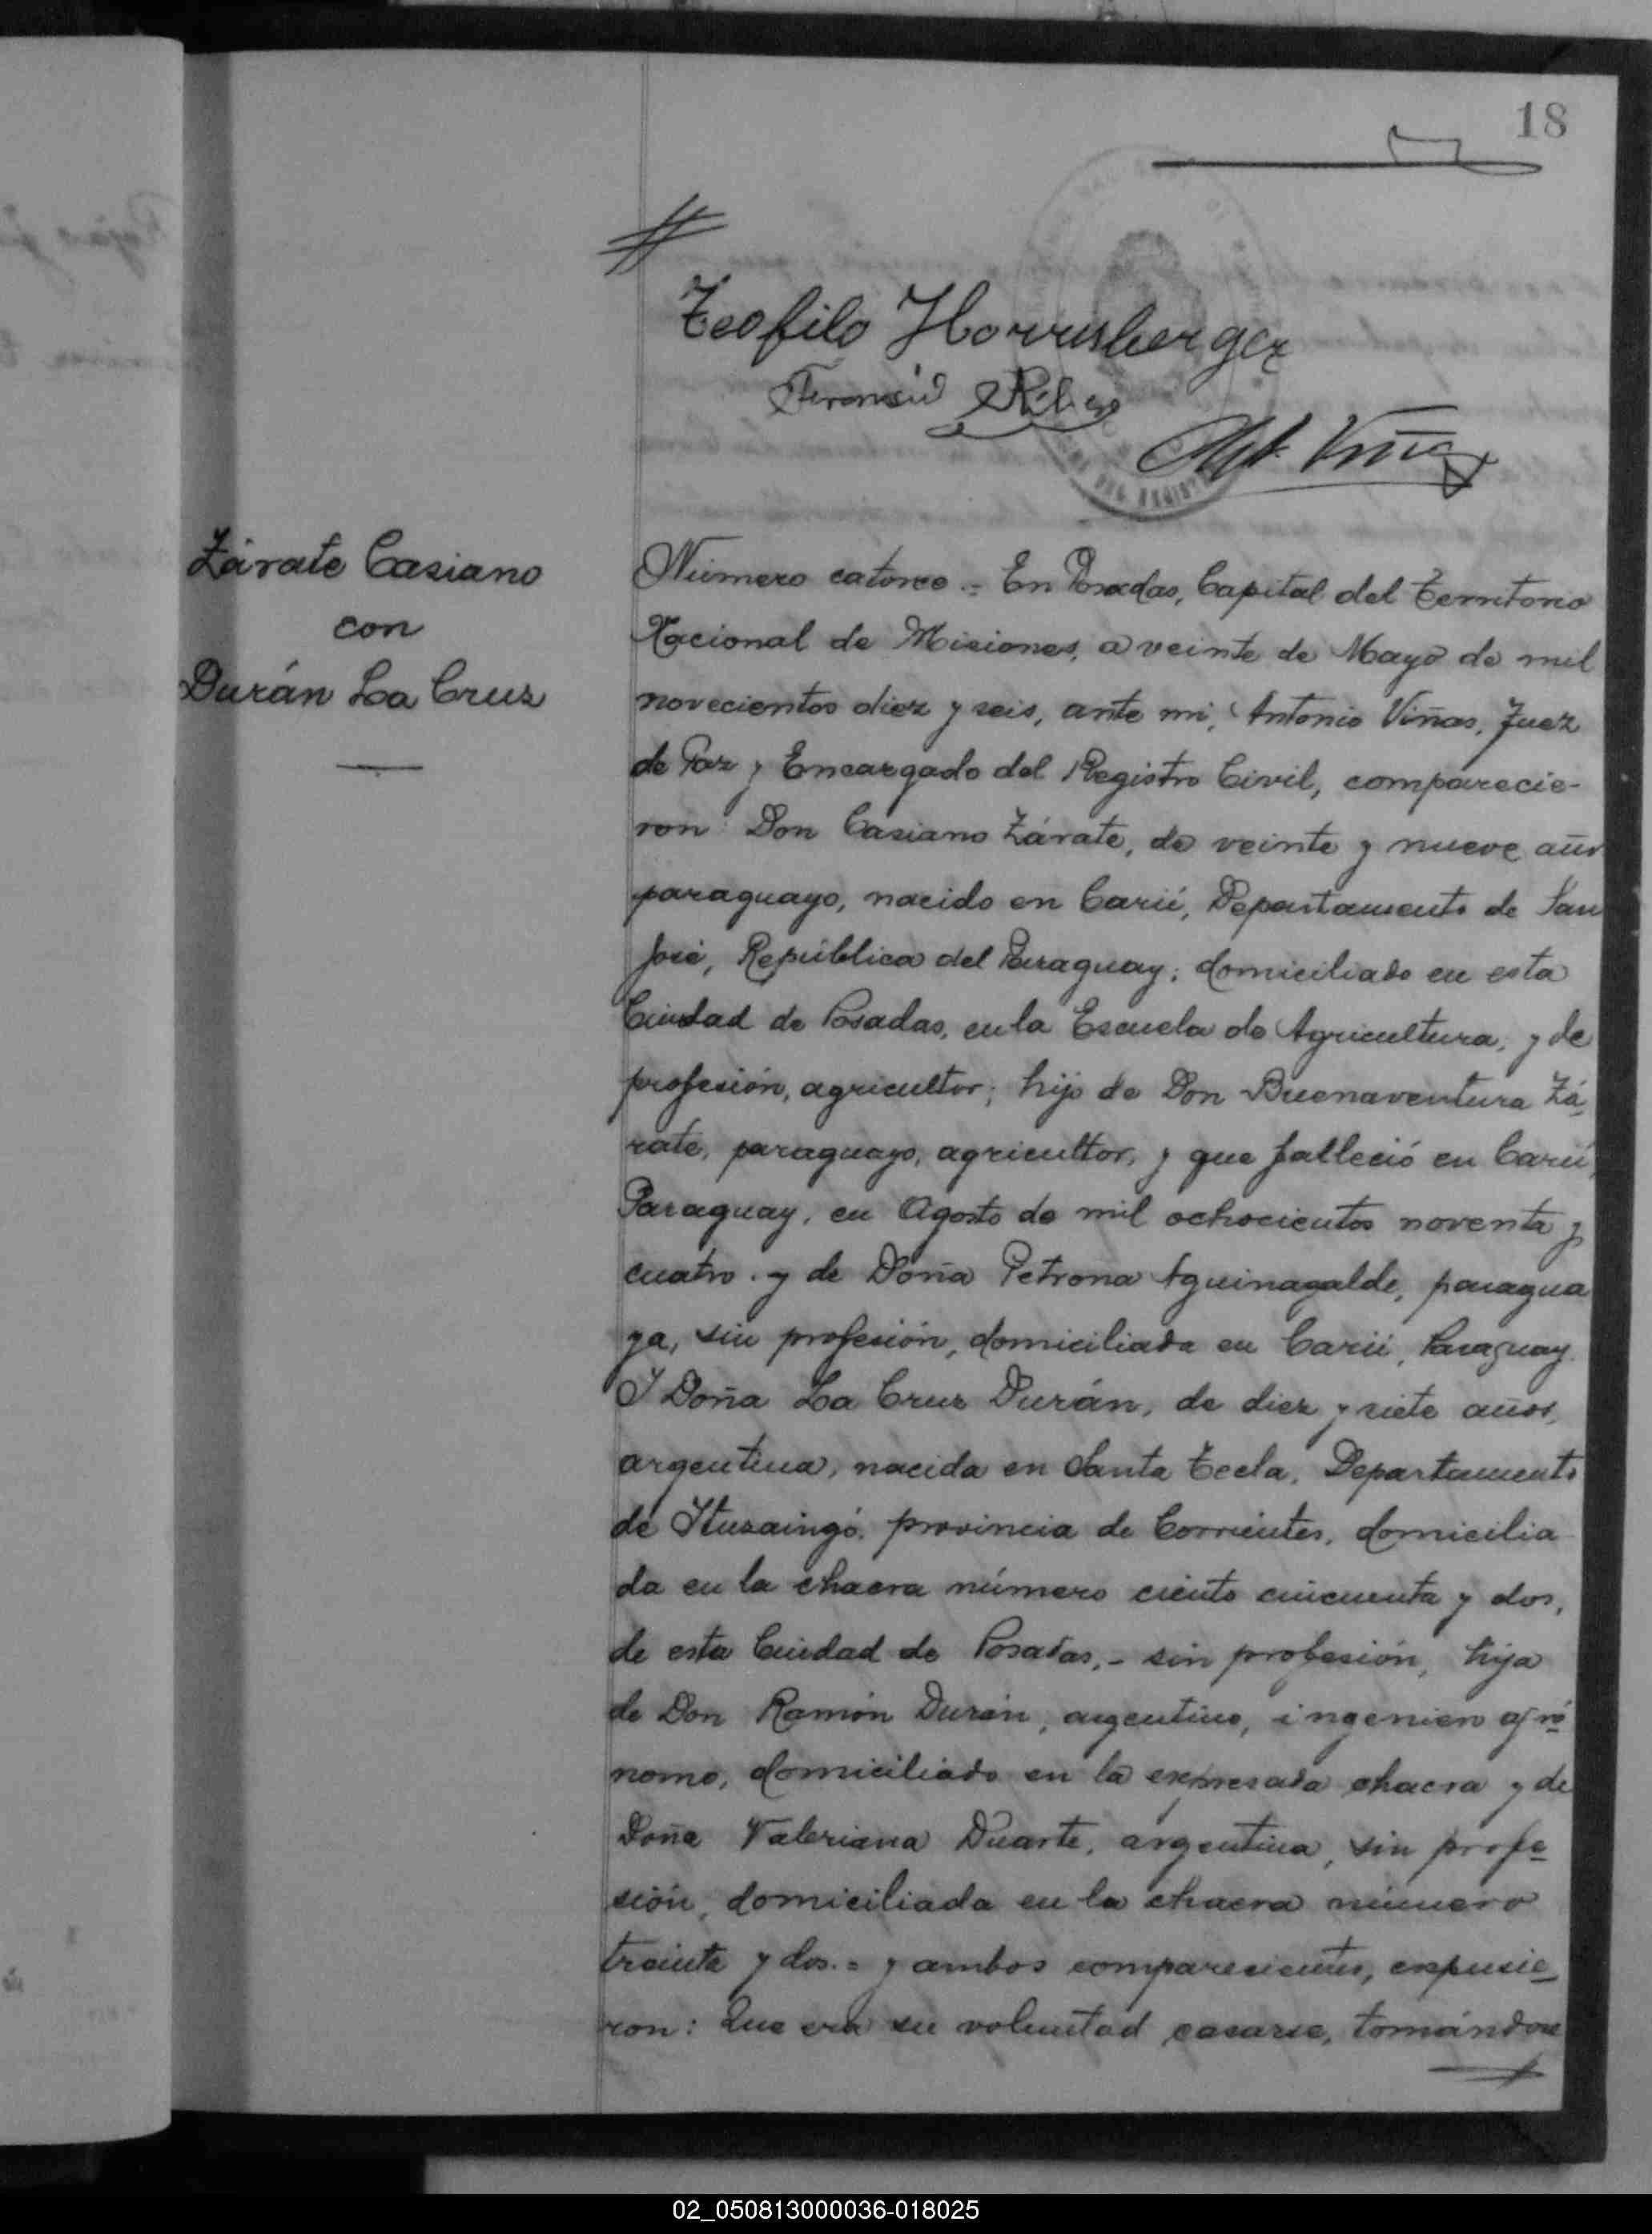 18
Teofilo Hornsberger
Ant. Viñas
Zárate Casiano
con
Durán La Cruz
Número catorce.= En Posadas, Capital del Territorio
Nacional de Misiones, a veinte de Mayo de mil
novecientos diez y seis, ante mi, Antonio Viñas, Juez
de Paz y Encargado del Registro Civil, comparecie-
ron: Don Casiano Zárate, de veinte y nueve años
paraguayo, nacido en Carií, Departamento de San
José, República del Paraguay; domiciliado en esta
Ciudad de Posadas, en la Escuela de Agricultura, y de
profesión, agricultor; hijo de Don Buenaventura Zá-
rate, paraguayo, agricultor, y que falleció en Carií,
Paraguay, en Agosto de mil ochocientos noventa y
cuatro. y de Doña Petrona Aguinagalde, paragua
ya, sin profesión, domiciliada en Carií, Paraguay.
Y Doña La Cruz Durán, de diez y siete años,
argentina, nacida en Santa Tecla, Departamento
de Ituzaingó, provincia de Corrientes, domicilia-
da en la chacra número ciento cincuenta y dos,
de esta Ciudad de Posadas,- sin profesión, hija
de Don Ramón Durán, argentino, ingeniero agró
nomo, domiciliado en la expresada chacra y de
Doña Valeriana Duarte, argentina, sin profe
sión, domiciliada en la chacra número
treinta y dos.= y ambos comparecientes, expusie
ron: Que era su voluntad casarse, tomándose
02_050813000036-018025